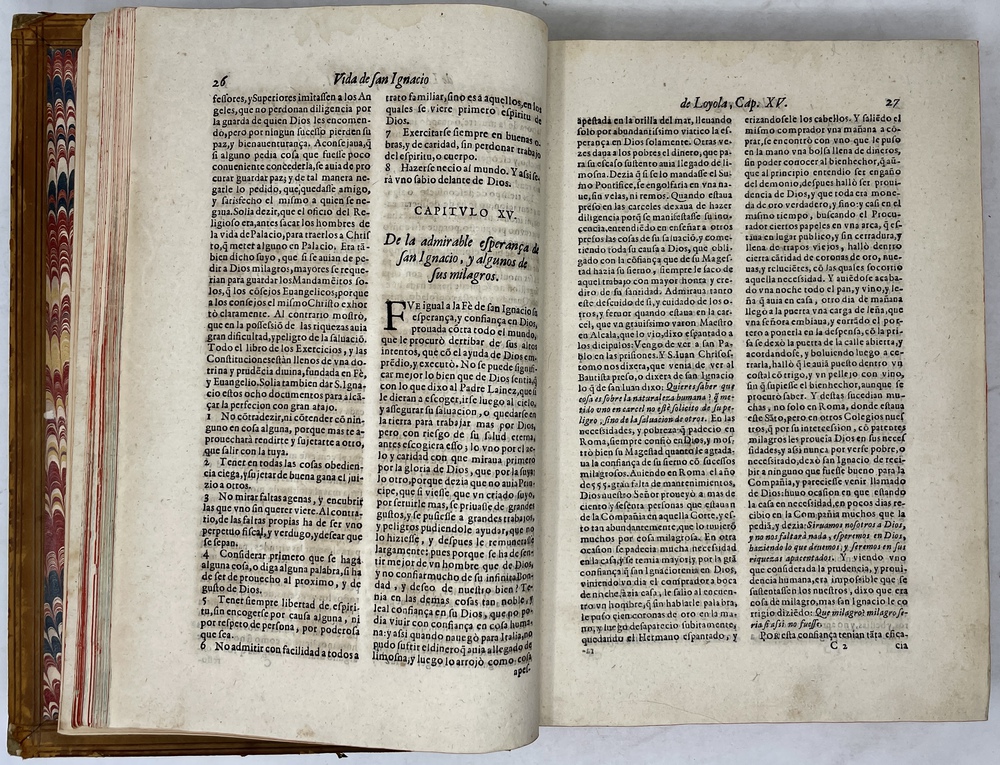 26
Vida de san Ignacio
fessores, y Superiores imitassen a los An
geles, que no perdonan diligencia por
la guarda de quien Dios les encomen-
dò, pero por ningun sucesso pierden su
paz, y bienauenturança. Aconsejaua, q̃
si alguno pedia cosa que fuesse poco
conueniente concederla, se auia de pro
curar guardar paz; y de tal manera ne-
garle lo pedido, que quedasse amigo,
y satisfecho el mismo a quien se ne-
gaua. Solia dezir, que el oficio del Re-
ligioso era, antes sacar los hombres de
la vida de Palacio, para traerlos a Chris
to, q̃ meter alguno en Palacio. Era tã-
bien dicho suyo, que si se auian de pe-
dir a Dios milagros, mayores se reque-
rian para guardar los Mandamiẽtos so-
los, q̃ los cõsejos Euangelicos; porque
a los consejos el mismo Christo exhor
tò claramente. Al contrario mostrò,
que en la possessiõ de las riquezas auia
gran dificultad, y peligro de la saluaciõ.
Todo el libro de los Exercicios, y las
Constituciones estàn llenos de vna do-
ctrina y prudẽcia diuina, fundada en Fè,
y Euangelio. Solia tambien dar S. Igna-
cio estos ocho documentos para alcã-
çar la perfecion con gran atajo.
1 No cõtradezir, ni cõtender cõ nin-
guno en cosa alguna, porque mas te a-
prouecharà rendirte y sujetarte a otro,
que salir con la tuya.
2 Tener en todas las cosas obedien-
cia ciega, y sujetar de buena gana el jui-
zio a otros.
3 No mirar faltas agenas, y encubrir
las que vno sin querer viere. Al contra-
rio, de las faltas propias ha de ser vno
perpetuo fiscal, y verdugo, y desear que
se sepan.
4 Considerar primero que se haga
alguna cosa, o diga alguna palabra, si ha
de ser de prouecho al proximo, y de
gusto de Dios.
5 Tener siempre libertad de espiri-
tu, sin encogerse por causa alguna, ni
por respeto de persona, por poderosa
que sea.
6 No admitir con facilidad a todos a
trato familiar, sino es a aquellos, en los
quales se viere primero espiritu de
Dios.
7 Exercitarse siempre en buenas o-
bras, y de caridad, sin perdonar trabajo
del espiritu, o cuerpo.
8 Hazerse necio al mundo. Y assi se-
rà vno sabio delante de Dios.
CAPITVLO XV.
De la admirable esperança de
san Ignacio, y algunos de
sus milagros.
FVE igual a la Fè de san Ignacio su
esperança, y confiança en Dios,
prouada cõtra todo el mundo,
que le procurò derribar de sus altos
intentos, que cõ el ayuda de Dios em-
prẽdio, y executò. No se puede signifi-
car mejor lo bien que de Dios sentia, q̃
con lo que dixo al Padre Lainez, que si
le dieran a escoger, irse luego al cielo,
y assegurar su saluacion, o quedarse en
la tierra para trabajar mas por Dios,
pero con riesgo de su salud eterna,
antes escogiera esso; lo vno por el ze-
lo y caridad con que miraua primero
por la gloria de Dios, que por la suya:
lo otro, porque dezia que no auia Prin-
cipe, que si viesse, que vn criado suyo,
por seruirle mas, se priuasse de grandes
gustos, y se pusiesse a grandes trabajos,
y peligros pudiendole ayudar, que no
lo hiziesse, y despues le remunerasse
largamente: pues porque se ha de sen-
tir mejor de vn hombre que de Dios,
y no confiar mucho de su infinita Bon-
dad, y deseo de nuestro bien? Te-
nia en las demas cosas tan noble, y
leal confiança en su Dios, que no po-
dia viuir con confiança en cosa huma-
na: y assi quando nauegò para Italia, no
pudo sufrir el dinero q̃ auia allegado de
limosna, y luego lo arrojò como cosa
apes-
de Loyola, Cap. XV.
27
apestada en la orilla del mar, lleuando
solo por abundantissimo viatico la es-
perança en Dios solamente. Otras ve-
zes daua a los pobres el dinero, que pa-
ra su escaso sustento auia llegado de li-
mosna. Dezia q̃ si se lo mandasse el Su-
mo Pontifice, se engolfaria en vna na-
ue, sin velas, ni remos. Quando estaua
preso en las carceles dexaua de hazer
diligencia porq̃ se manifestasse su ino-
cencia, entendiẽdo en enseñar a otros
presos las cosas de su saluaciõ, y come-
tiendo toda su causa a Dios, que obli-
gado con la cõfiança que de su Mages-
tad hazia su sieruo, siempre le saco de
aquel trabajo con mayor honra y cre-
dito de su santidad. Admiraua tanto
este descuido de si, y cuidado de los o-
tros, y feruor quando estaua en la car-
cel, que vn grauissimo varon Maestro
en Alcala, que lo vio, dixo espantado a
los dicipulos: Vengo de ver a san Pa-
blo en las prisiones. Y S. Iuan Chrisos-
tomo nos dixera, que venia de ver al
Bautista preso, o dixera de san Ignacio
lo q̃ de san Iuan dixo: Quieres saber que
cosa es sobre la naturaleza humana? q̃ me-
tido vno en carcel no estè solicito de su pe-
ligro, sino de la saluacion de otros. En las
necessidades, y pobreza q̃ padecio en
Roma, siempre confiò en Dios, y mos-
trò bien su Magestad quanto le agrada-
ua la confiança de su sieruo cõ sucessos
milagrosos. Auiendo en Roma el año
de 555. gran falta de mantenimientos,
Dios nuestro Señor proueyò a mas de
ciento y sesenta personas que estauan
de la Compañia en aquella Corte, y es-
to tan abundantemente, que lo tuuierõ
muchos por cosa milagrosa. En otra
ocasion se padecia mucha necessidad
en la casa, y se temia mayor; y por la grã
confiança q̃ san Ignacio tenia en Dios,
viniendo vn dia el comprador a boca
de noche, àzia casa, le salio al encuen-
tro vn hombre, q̃ sin hablarle palabra,
le puso cien coronas de oro en la ma-
no, y luego desaparecio subitamente,
quedando el Hermano espantado, y
erizandosele los cabellos. Y saliẽdo el
mismo comprador vna mañana a cõ-
prar, se encontrò con vno que le puso
en la mano vna bolsa llena de dineros,
sin poder conocer al bienhechor, q̃ aũ-
que al principio entendio ser engaño
del demonio, despues hallò ser proui-
dencia de Dios, y que toda era mone-
da de oro verdadero, y sino: y casi en el
mismo tiempo, buscando el Procu-
rador ciertos papeles en vna arca, q̃ es-
taua en lugar publico, y sin cerradura, y
llena de trapos viejos, hallò dentro
cierta cãtidad de coronas de oro, nue-
uas, y reluciẽtes, cõ las quales socorrio
aquella necessidad. Y auiẽdose acaba-
do vna noche todo el pan, y vino, y le-
ña q̃ auia en casa, otro dia de mañana
llegò a la puerta vna carga de leña, que
vna señora embiaua, y entrãdo el por-
tero a ponerla en la despensa, cõ la pri-
sa se dexò la puerta de la calle abierta, y
acordandose, y boluiendo luego a ce-
rrarla, hallò q̃ le auiã puesto dentro vn
costal cõ trigo, y vn pellejo con vino,
sin q̃ supiesse el bienhechor, aunque se
procurò saber. Y destas sucedian mu-
chas, no solo en Roma, donde estaua
este Sãto, pero en otros Colegios nues
tros, q̃ por su intercession, cõ patentes
milagros les proueia Dios en sus neces
sidades, y assi nunca por verse pobre, o
necessitado, dexò san Ignacio de reci-
bir a ninguno que fuesse bueno para la
Compañia, y pareciesse venir llamado
de Dios: huuo ocasion en que estando
la casa en necessidad, en pocos dias re-
cibio en la Compañia muchos que la
pediã, y dezia: Siruamos nosotros a Dios,
y no nos faltarà nada, esperemos en Dios,
haziendo lo que deuemos, y seremos en sus
riquezas apacentados. Y viendo vno
que considerada la prudencia, y proui-
dencia humana, era impossible que se
sustentassen los nuestros, dixo que era
cosa de milagro, mas san Ignacio le co
rrigio diziẽdo: Que milagro? milagro se-
ria si assi no fuesse.
Por esta confiança tenian tãta efica-
C 2
cia